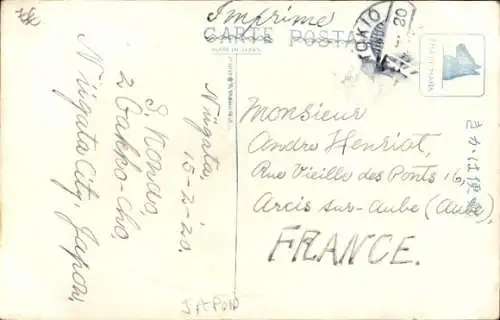 Imprimé
CARTE POSTALE
TOKIO
20
きかは便郵
Niigata
15-2-20.
S. Kondo,
2 Gakko-cho
Niigata City, Japon,
Monsieur
Andre Henriot,
Rue Vieille des Ponts 16,
Arcis sur-Aube (Aube)
FRANCE.
JAPON